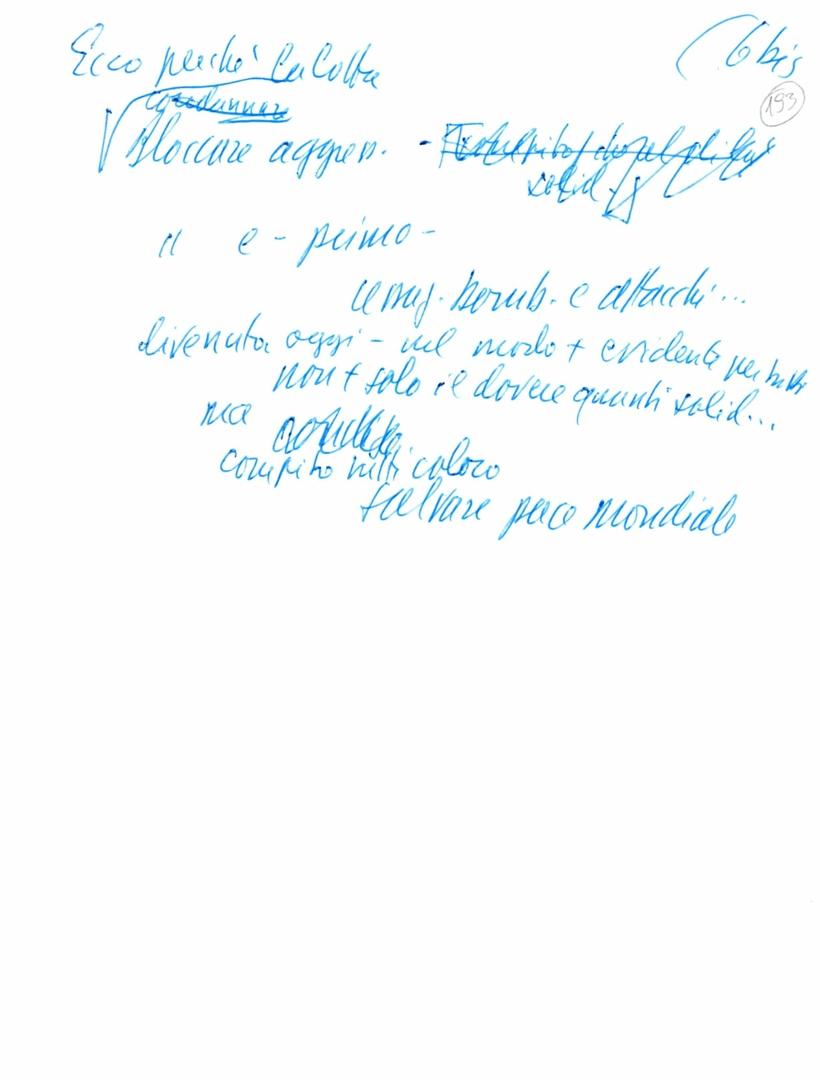 Ecco perché la lotta
(6 bis
193
condannare
Bloccare aggress. -
solid.
il e - primo -
bomb. e attacchi...
divenuta oggi - nel modo + evidente per tutti
non + solo il dovere quanti solid...
ma
compito tutti coloro
salvare pace mondiale